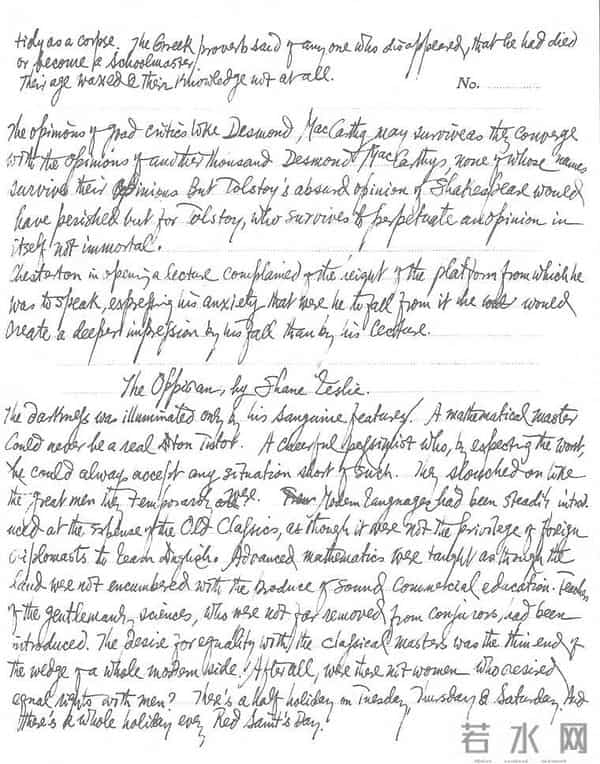 tidy as a corpse. The Greek proverb said of any one who disappeared, that he had died
or become a schoolmaster.
Their age waxed & their knowledge not at all.
No.
The opinions of good critics like Desmond MacCarthy may survive as they converge
with the opinions of another thousand Desmond MacCarthys, none of whose names
survive their opinions. But Tolstoy's absurd opinion of Shakespeare would
have perished but for Tolstoy, who survives to perpetuate an opinion in
itself not immortal.
Chesterton in opening a lecture complained of the height of the platform from which he
was to speak, expressing his anxiety that were he to fall from it he would
create a deeper impression by his fall than by his lecture.
The Oppidan, by Shane Leslie.
The darkness was illuminated only by his sanguine features. A mathematical master
could never be a real Eton Tutor. A cheerful pessimist who, by expecting the worst,
he could always accept any situation short of such. They slouched on like
the great men they temporarily were. Modern languages had been steadily introd
uced at the expense of the Old Classics, as though it were not the privilege of foreign
diplomats to learn English. Advanced mathematics were taught as though the
land were not encumbered with the produce of sound commercial education. Teachers
of the gentlemanly sciences, who were not far removed from conjurors, had been
introduced. The desire for equality with the classical masters was the thin end of
the wedge of a whole modern side. After all, were there not women who desired
equal rights with men? There's a half holiday on Tuesday, Thursday & Saturday, And
there's a whole holiday every Red Saint's Day.
若水网